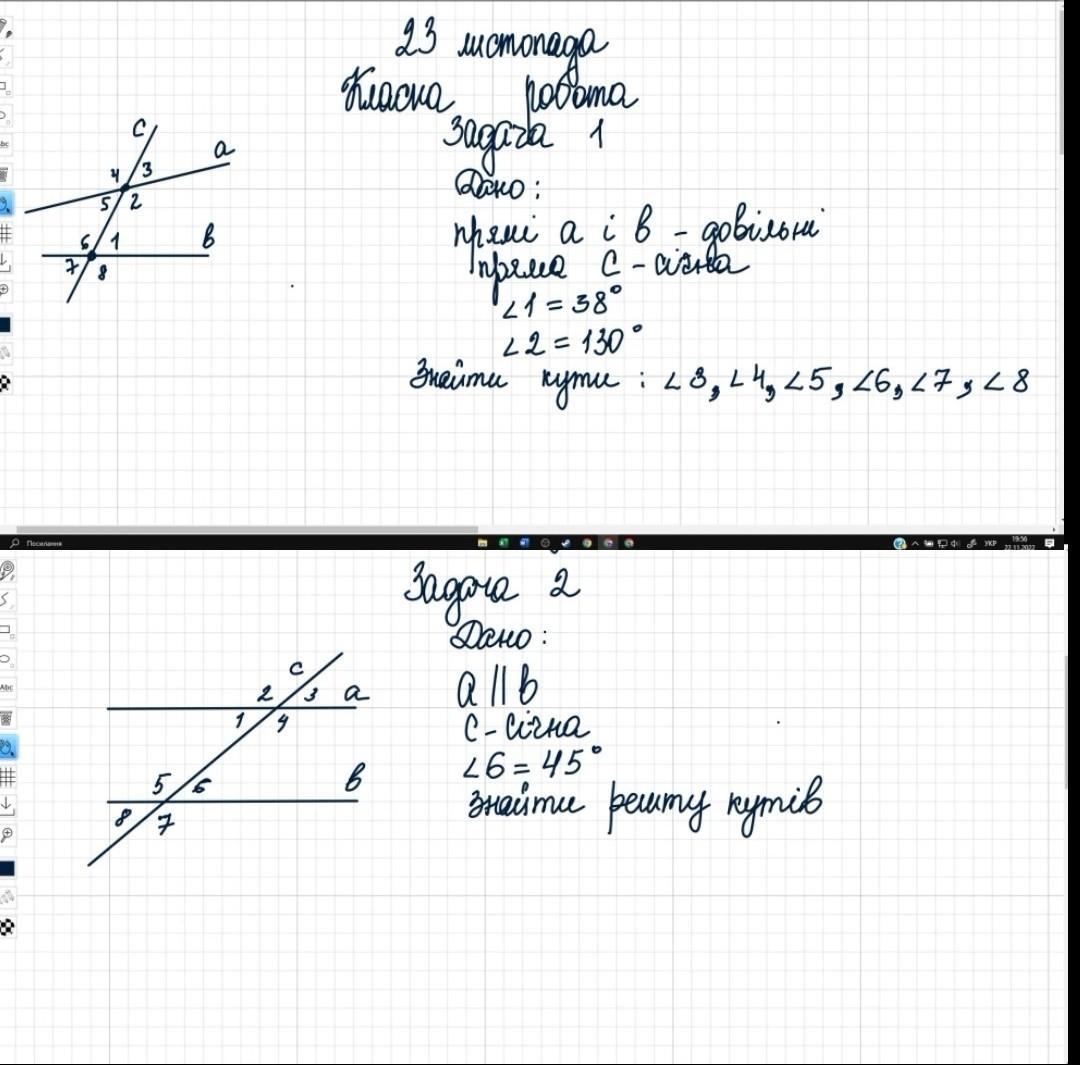 23 листопада
Класна робота
Задача 1
Дано:
прямі a і b - довільні
пряма c - січна
∠1 = 38°
∠2 = 130°
Знайти кути : ∠3, ∠4, ∠5, ∠6, ∠7, ∠8
c
a
4 3
5 2
6 1 b
7 8
Abc
Посилання
УКР
19:56
22.11.2022
Задача 2
Дано:
a || b
c - січна
∠6 = 45°
знайти решту кутів
c
2 3 a
1 4
5 6 b
8 7
Abc